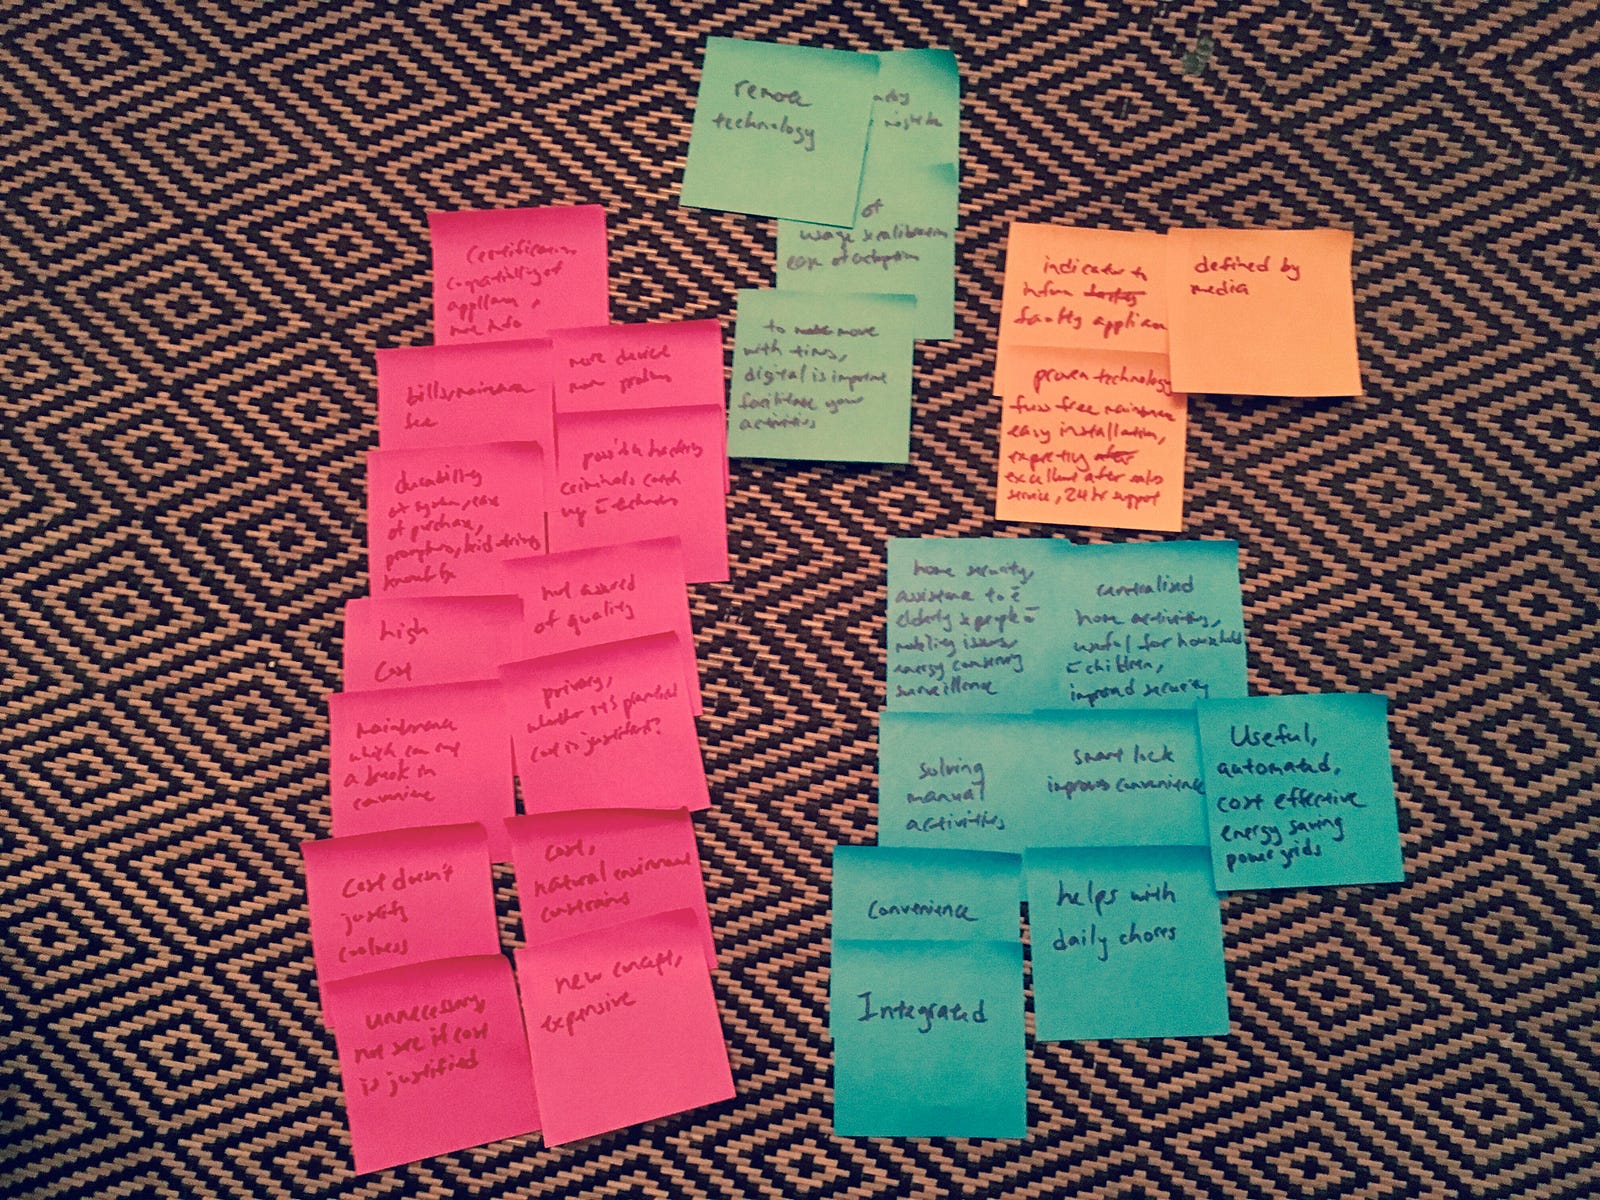 remote
technology
of
usage
ease of adoption
to move
with times,
digital is
facilitate your
activities
compatibility of
appliances,
more info
bills, maintenance
fee
more device
more problem
durability
of system, ease
of purchase,
possible hacking
criminals catch
up c̄ technology
not assured
of quality
high
cost
privacy,
whether it's
cost is justified?
maintenance
which can cause
a break in
convenience
cost doesn't
justify
coolness
cost,
natural environment
constraints
unnecessary,
not see if cost
is justified
new concept,
expensive
indicator to
inform
faulty appliance
defined by
media
proven technology
fuss free maintenance
easy installation,
expecting
excellent after sales
service, 24 hr support
home security,
assistance to c̄
elderly & people c̄
mobility issues,
energy conserving
surveillance
centralised
home activities,
useful for household
c̄ children,
improved security
solving
manual
activities
smart lock
improves convenience
Useful,
automated,
cost effective
energy saving
power grids
convenience
helps with
daily chores
Integrated